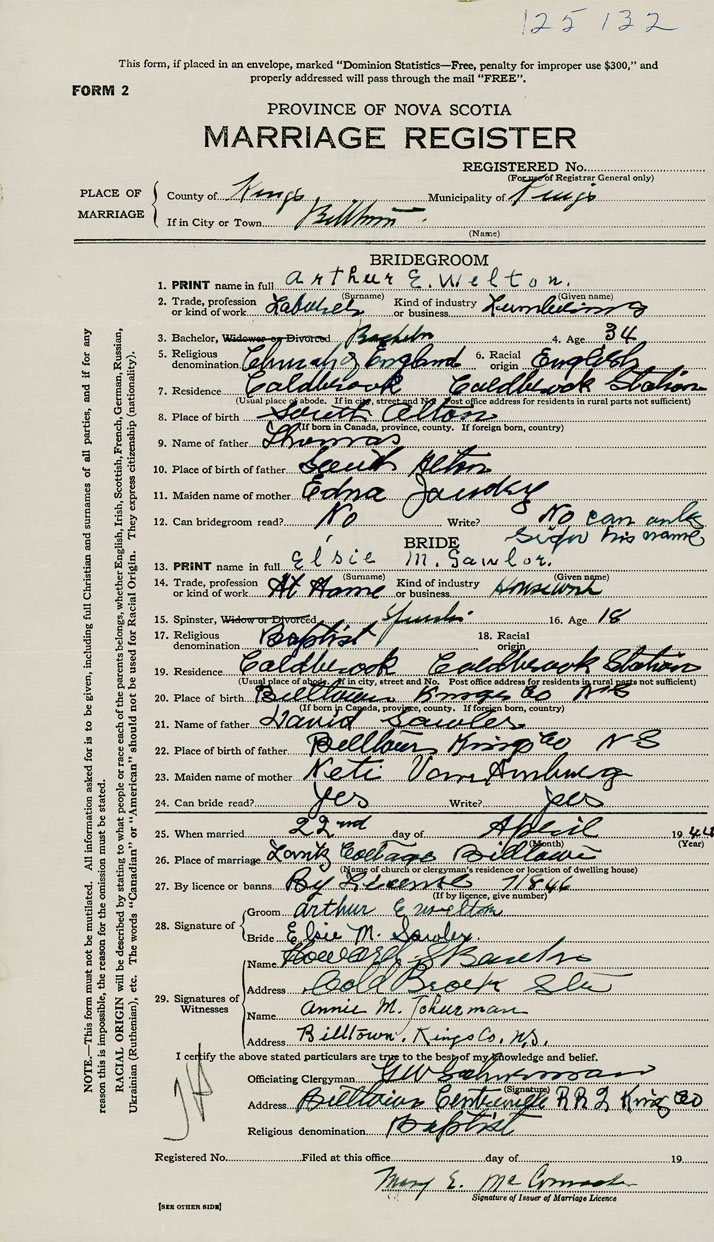 125132
This form, if placed in an envelope, marked "Dominion Statistics—Free, penalty for improper use $300," and
properly addressed will pass through the mail "FREE".
FORM 2
PROVINCE OF NOVA SCOTIA
MARRIAGE REGISTER
REGISTERED No.
(For use of Registrar General only)
PLACE OF MARRIAGE
County of Kings Municipality of Kings
If in City or Town Billtown
(Name)
BRIDEGROOM
1. PRINT name in full Arthur E. Welton.
(Surname) (Given name)
2. Trade, profession or kind of work Labourer Kind of industry or business Lumbering
3. Bachelor, Widower or Divorced Bachelor 4. Age 34
5. Religious denomination Church of England 6. Racial origin English
7. Residence Coldbrook Coldbrook Station
(Usual place of abode. If in city, street and No. Post office address for residents in rural parts not sufficient)
8. Place of birth South Alton
(If born in Canada, province, county. If foreign born, country)
9. Name of father Thomas
10. Place of birth of father South Alton
11. Maiden name of mother Edna
12. Can bridegroom read? No Write? No can only
sign his name
BRIDE
13. PRINT name in full Elsie M. Sawler.
(Surname) (Given name)
14. Trade, profession or kind of work At Home Kind of industry or business Housework
15. Spinster, Widow or Divorced 16. Age 18
17. Religious denomination Baptist 18. Racial origin
19. Residence Coldbrook Coldbrook Station
(Usual place of abode. If in city, street and No. Post office address for residents in rural parts not sufficient)
20. Place of birth Billtown Kings Co N S
(If born in Canada, province, county. If foreign born, country)
21. Name of father David Sawler
22. Place of birth of father Billtown Kings Co N S
23. Maiden name of mother Keti Van Amburg
24. Can bride read? yes Write? yes
25. When married 22nd day of April 1944
(Month) (Year)
26. Place of marriage Cottage Billtown
(Name of church or clergyman's residence or location of dwelling house)
27. By licence or banns By License 71846
(If by licence, give number)
28. Signature of
Groom Arthur E Welton
Bride Elsie M. Sawler.
29. Signatures of Witnesses
Name Howard S
Address Cold Brook Sta
Name Annie M. Schurman
Address Billtown, Kings Co. N.S.
I certify the above stated particulars are true to the best of my knowledge and belief.
Officiating Clergyman G W Schurman
(Signature)
Address Billtown Centreville R R 2 Kings Co
Religious denomination Baptist
Registered No. Filed at this office day of 19
Mary E.
Signature of Issuer of Marriage Licence
[SEE OTHER SIDE]
NOTE.—This form must not be mutilated. All information asked for is to be given, including full Christian and surnames of all parties, and if for any
reason this is impossible, the reason for the omission must be stated.
RACIAL ORIGIN will be described by stating to what people or race each of the parents belongs, whether English, Irish, Scottish, French, German, Russian,
Ukrainian (Ruthenian), etc. The words "Canadian" or "American" should not be used for Racial Origin. They express citizenship (nationality).